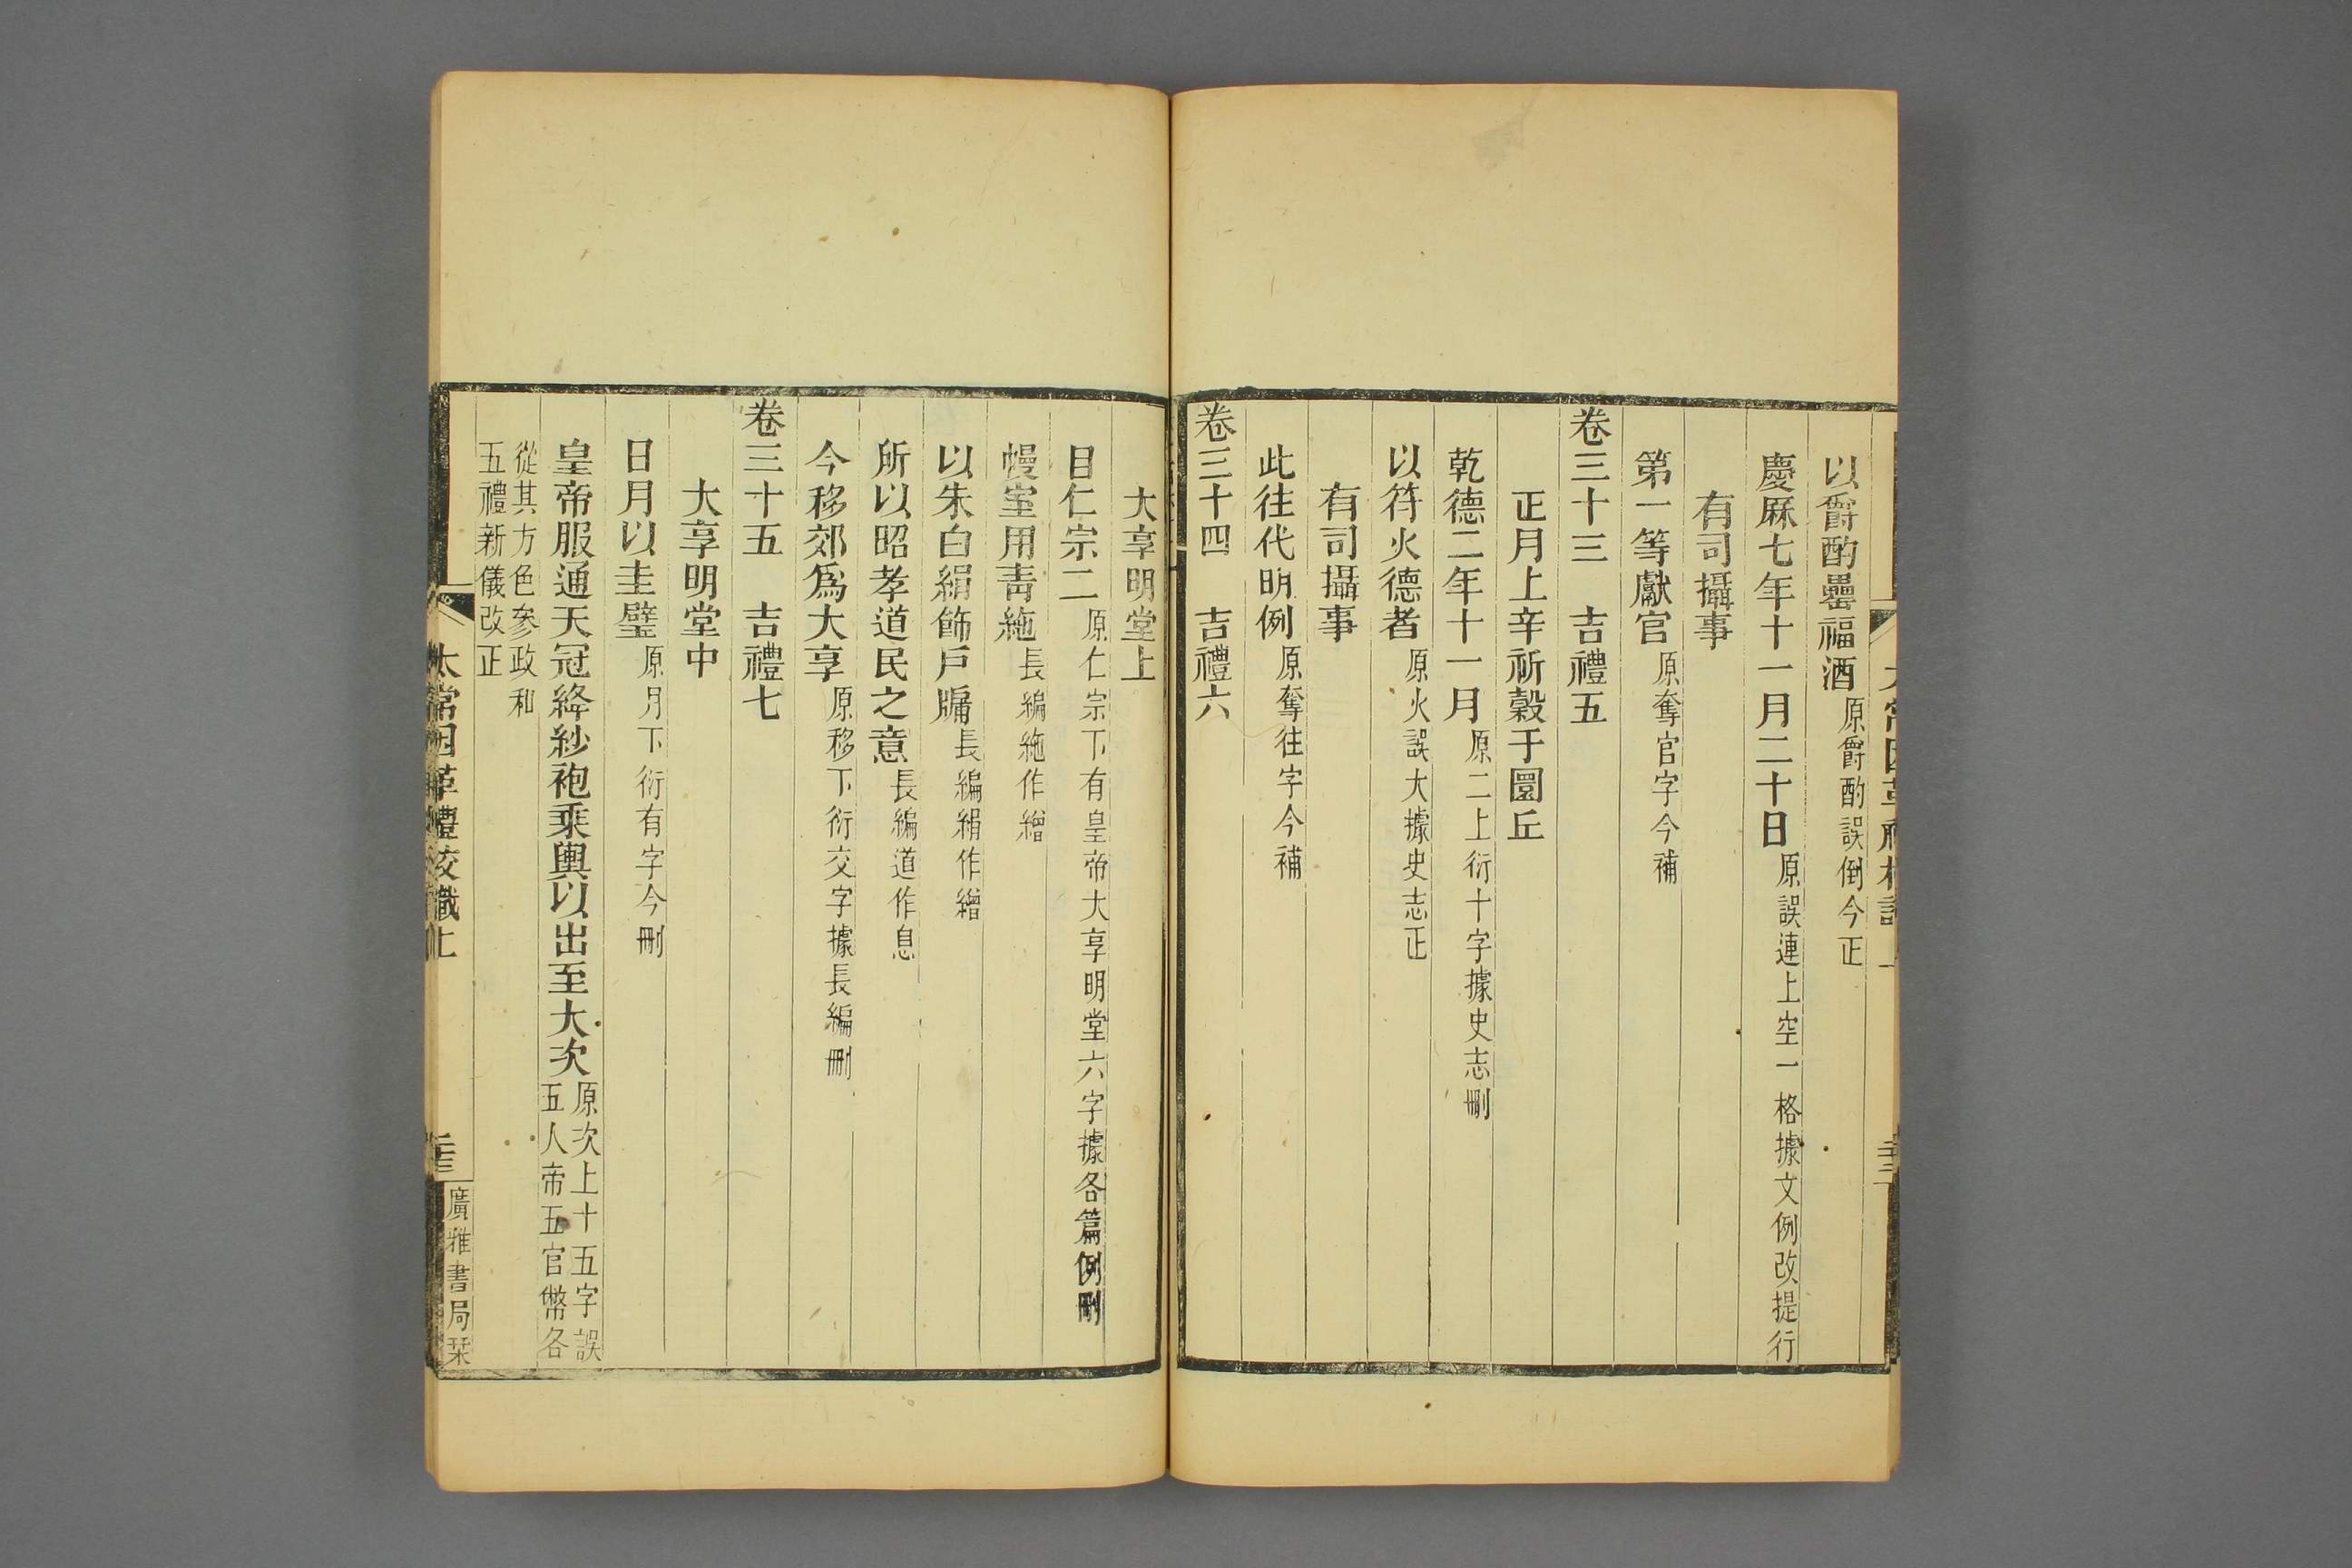 以爵酌罍福酒原爵酌誤倒今正
慶厤七年十一月二十日原誤連上空一格據文例改提行
有司攝事
第一等獻官原奪官字今補
卷三十三　吉禮五
正月上辛祈穀于圜丘
乾德二年十一月原二上衍十字據史志刪
以符火德者原火誤大據史志正
有司攝事
此往代明例原奪往字今補
卷三十四　吉禮六
大享明堂上
目仁宗二原仁宗下有皇帝大享明堂六字據各篇例刪
幔室用青絁長編絁作繒
以朱白絹飾戶牖長編絹作繒
所以昭孝道民之意長編道作息
今移郊爲大享原移下衍交字據長編刪
卷三十五　吉禮七
大享明堂中
日月以圭璧原月下衍有字今刪
皇帝服通天冠絳紗袍乘輿以出至大次原次上十五字誤
五人帝五官幣各
從其方色參政和
五禮新儀改正
太常因革禮校識上
廣雅書局栞